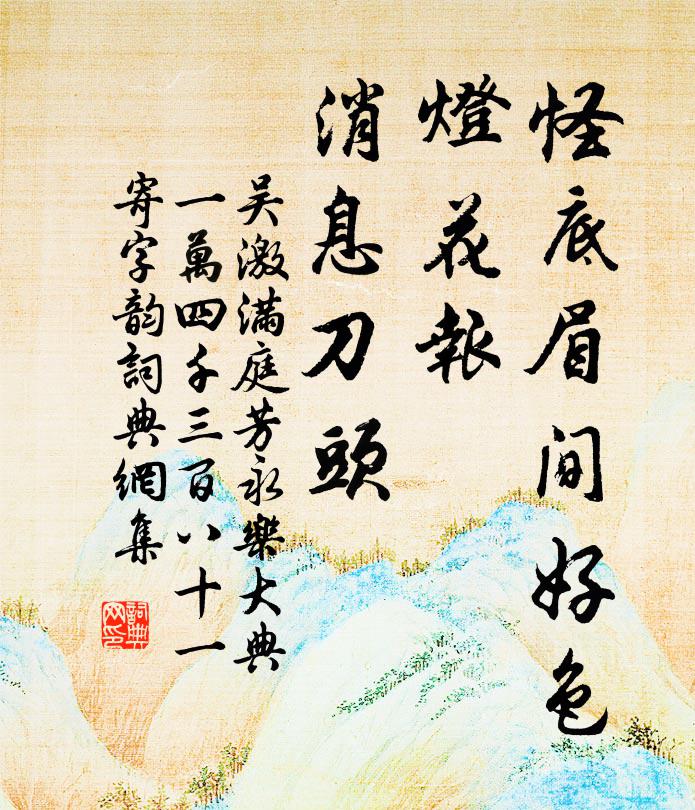 怪底眉間好色
燈花報
消息刀頭
吴激滿庭芳永樂大典
一萬四千三百八十一
寄字韵詞典網集
詞典
网印